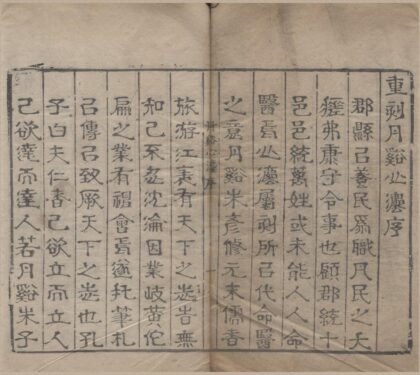 重刻丹谿心灋序
郡縣㠯養民爲職凡民之夭
瘥弗康守令事也顧郡統十
邑邑統萬姓或未能人人命
醫焉心灋屬刻所㠯代命醫
之意丹谿朱彥修元末儒者
旅游江表有天下之志苦無
知己至甚沈淪因業岐黃佗
扁之業有禆會焉遂托筆札
㠯傳㠯致厥天下之志也孔
子曰夫仁者己欲立而立人
己欲達而達人若丹谿朱子